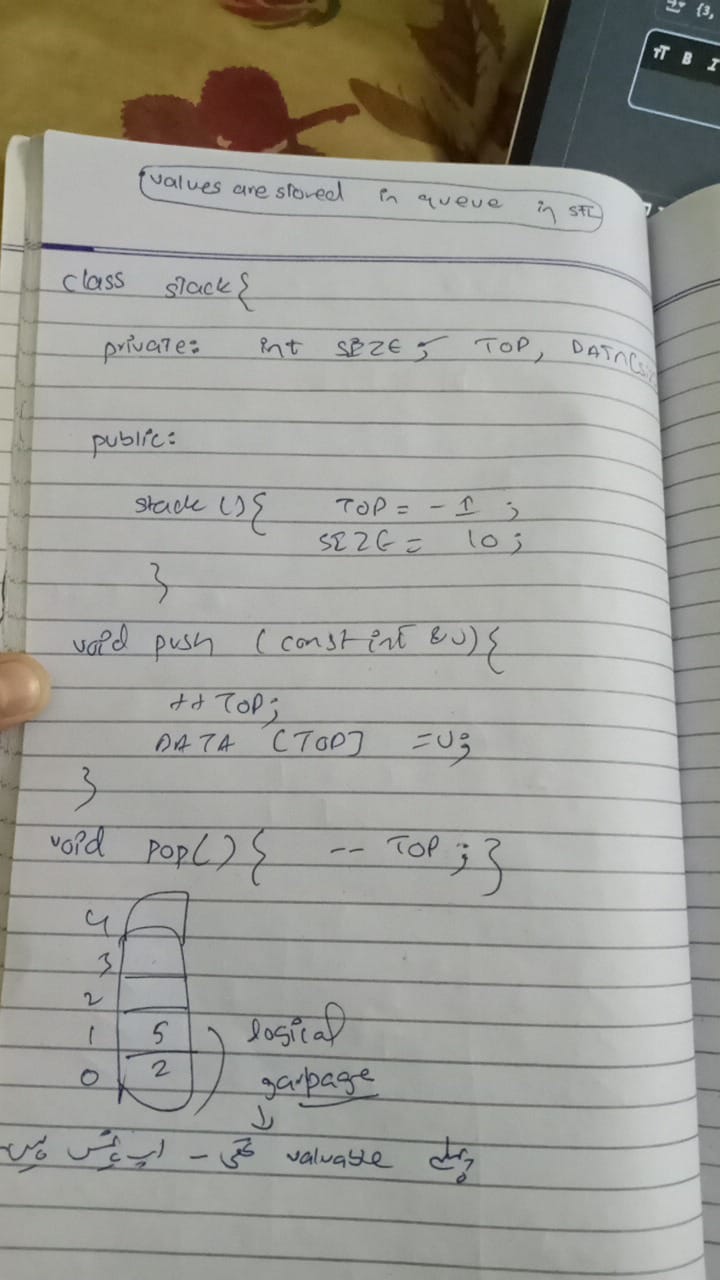 values are stored in queue in STL
class stack{
private: int SIZE; TOP, DATA[siz
public:
stack (){ TOP = -1;
SIZE = 10;
}
void push (const int &v){
++TOP;
DATA [TOP] = v;
}
void pop(){ -- TOP;}
4
3
2
1 5 logical
0 2 garbage
پہلے valuable تھی - اب نہیں